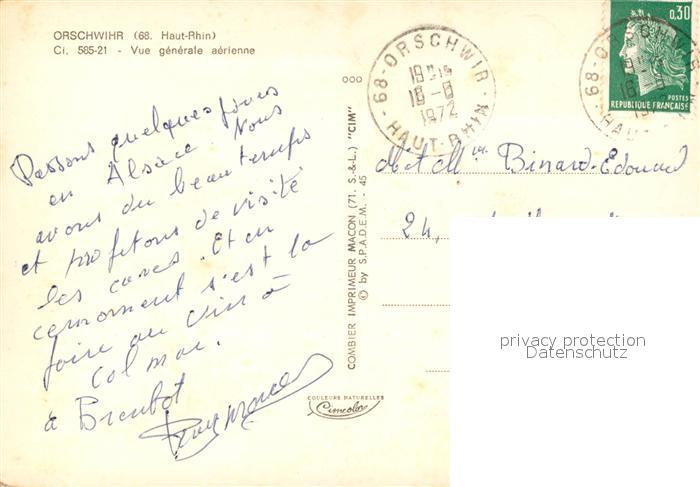 ORSCHWIHR (68. Haut-Rhin)
Ci. 585-21 - Vue générale aérienne
Passons quelques jours
en Alsace Nous
avons du beau temps
et profitons de visité
les caves. Et en
ce moment s'est la
foire au vin à
Colmar.
à Bientot
COMBIER IMPRIMEUR MACON (71. S.-&-L.) "CIM"
© by S.P.A.D.E.M. - 45
COULEURS NATURELLES
Cimcolor
68-ORSCHWIR-
18-8
1972
HAUT-RHIN
0,30
POSTES
REPUBLIQUE FRANÇAISE
68-ORSCHWIR
Mr et Mme Binard-Edouard
24,
privacy protection
Datenschutz